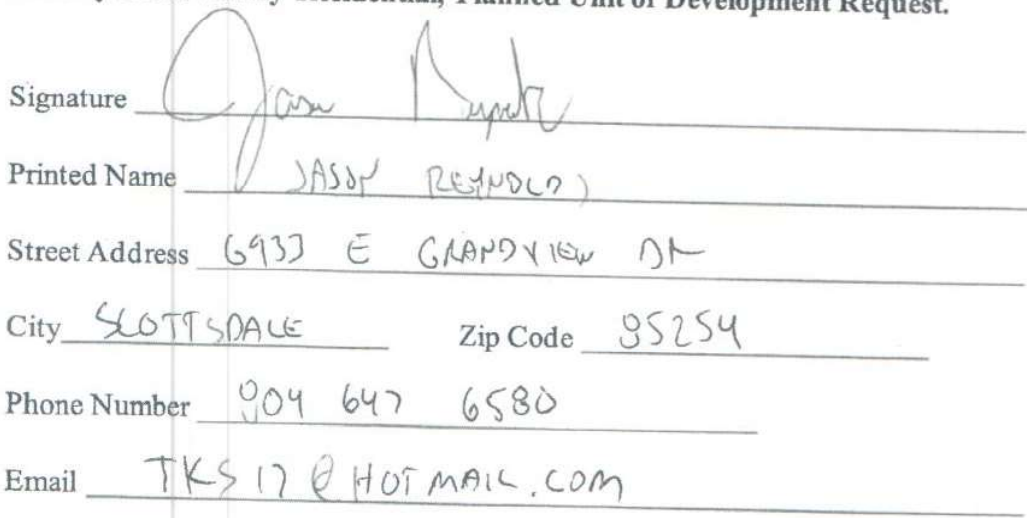 Residential, Planned Unit of Development Request.
Signature Jason
Printed Name JASON REYNOLDS
Street Address 6933 E GRANDVIEW DR
City SCOTTSDALE Zip Code 85254
Phone Number 904 647 6580
Email TKS17@HOTMAIL.COM